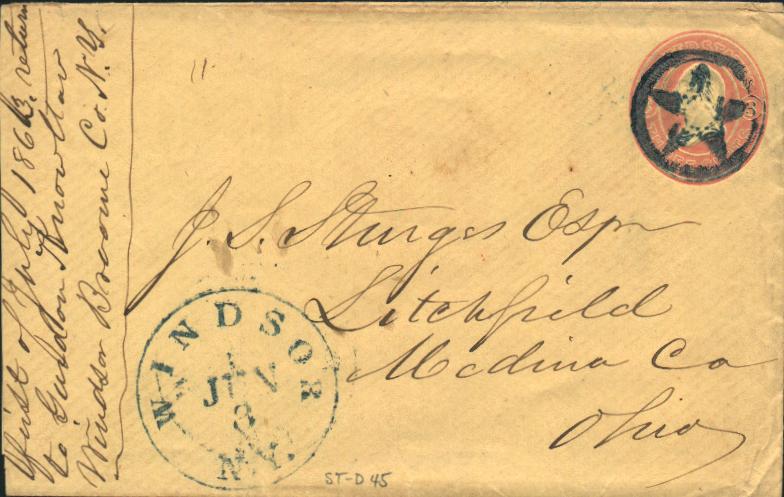 first of July 1863 return
to Gurdon Knowlton
Windsor Broome Co. N.Y.
J. S. Sturges Esqr
Litchfield
Medina Co
Ohio
WINDSOR
N.Y.
3
ST-D 45